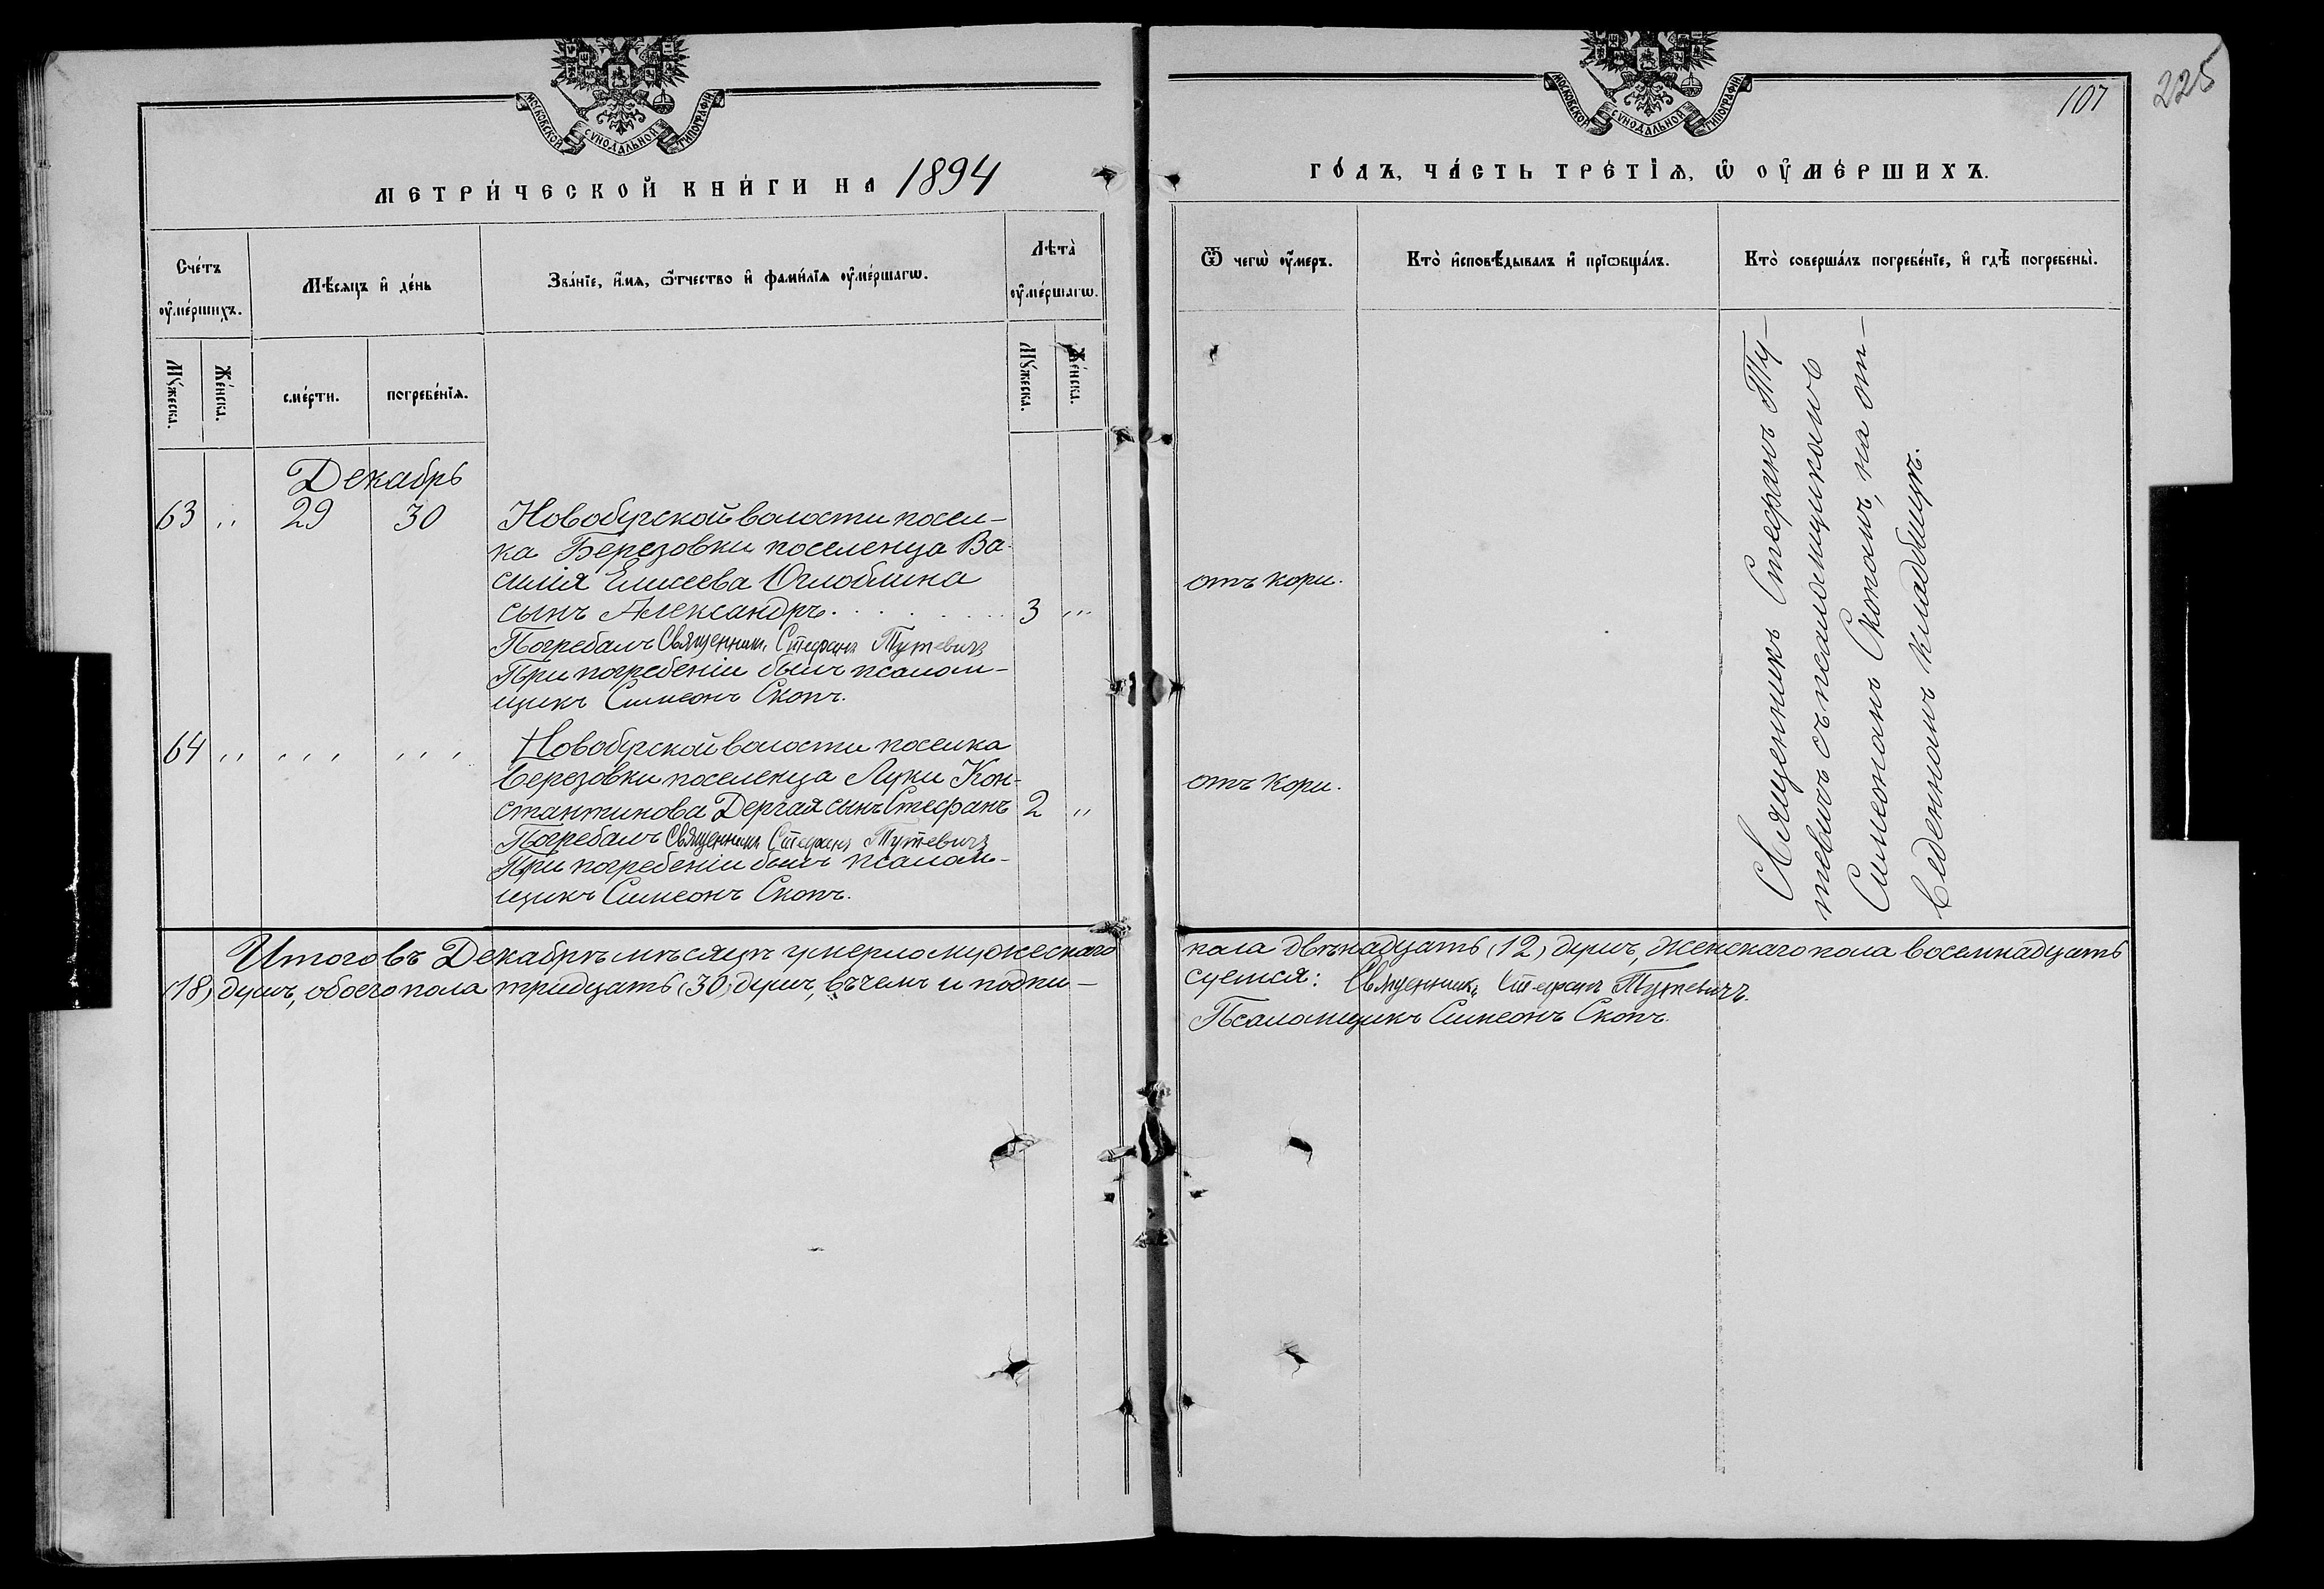 МОСКОВСКОЙ СУНОДАЛЬНОЙ ТИПОГРАФІИ
МЕТРИ́ЧЕСКОЙ КНИ́ГИ НА 1894
Сче́тъ ᲂу҆ме́ршихъ.
Мѣ́сяцъ и҆ де́нь
Зва́нїе, и҆́мя, ѻ҆́тчество и҆ фами́лїя ᲂу҆ме́ршагѡ.
Лѣта̀ ᲂу҆ме́ршагѡ.
Мꙋ́жеска.
Же́нска.
сме́рти.
погребе́нїя.
Мꙋ́жеска.
Же́нска.
Декабрь
63 " 29 30 Новобурской волости посел-
ка Березовки поселенца Ва-
силія Елисеева Оглоблина
сынъ Александръ. 3 "
Погребалъ Священникъ Стефанъ Тутевичъ
При погребеніи былъ псалом-
щикъ Симеонъ Скопъ.
64 " " " Новобурской волости поселка
Березовки поселенца Луки Кон-
стантинова Дергая сынъ Стефанъ 2 "
Погребалъ Священникъ Стефанъ Тутевичъ
При погребеніи былъ псалом-
щикъ Симеонъ Скопъ.
Итого въ Декабрѣ мѣсяцѣ умерло мужескаго
(18) душъ, обоего пола тридцать (30) душъ, въ чемъ и подпи-
225
107
МОСКОВСКОЙ СУНОДАЛЬНОЙ ТИПОГРАФІИ
ГО́ДЪ, ЧА́СТЬ ТРЕ́ТІѦ, Ѡ҆ ОУ҆МЕ́РШИХЪ.
Ѿ чегѡ̀ ᲂу҆́меръ.
Кто̀ и҆сповѣ́дывалъ и҆ прїѡбща́лъ.
Кто̀ соверша́лъ погребе́нїе, и҆ гдѣ̀ погребены̀.
отъ кори.
отъ кори.
Священникъ Стефанъ Ту-
тевичъ съ псаломщикомъ
Симеономъ Скопомъ, на от-
веденномъ кладбищѣ.
пола двѣнадцать (12) душъ, женскаго пола восемнадцать
суемся: Священникъ Стефанъ Тутевичъ.
Псаломщикъ Симеонъ Скопъ.